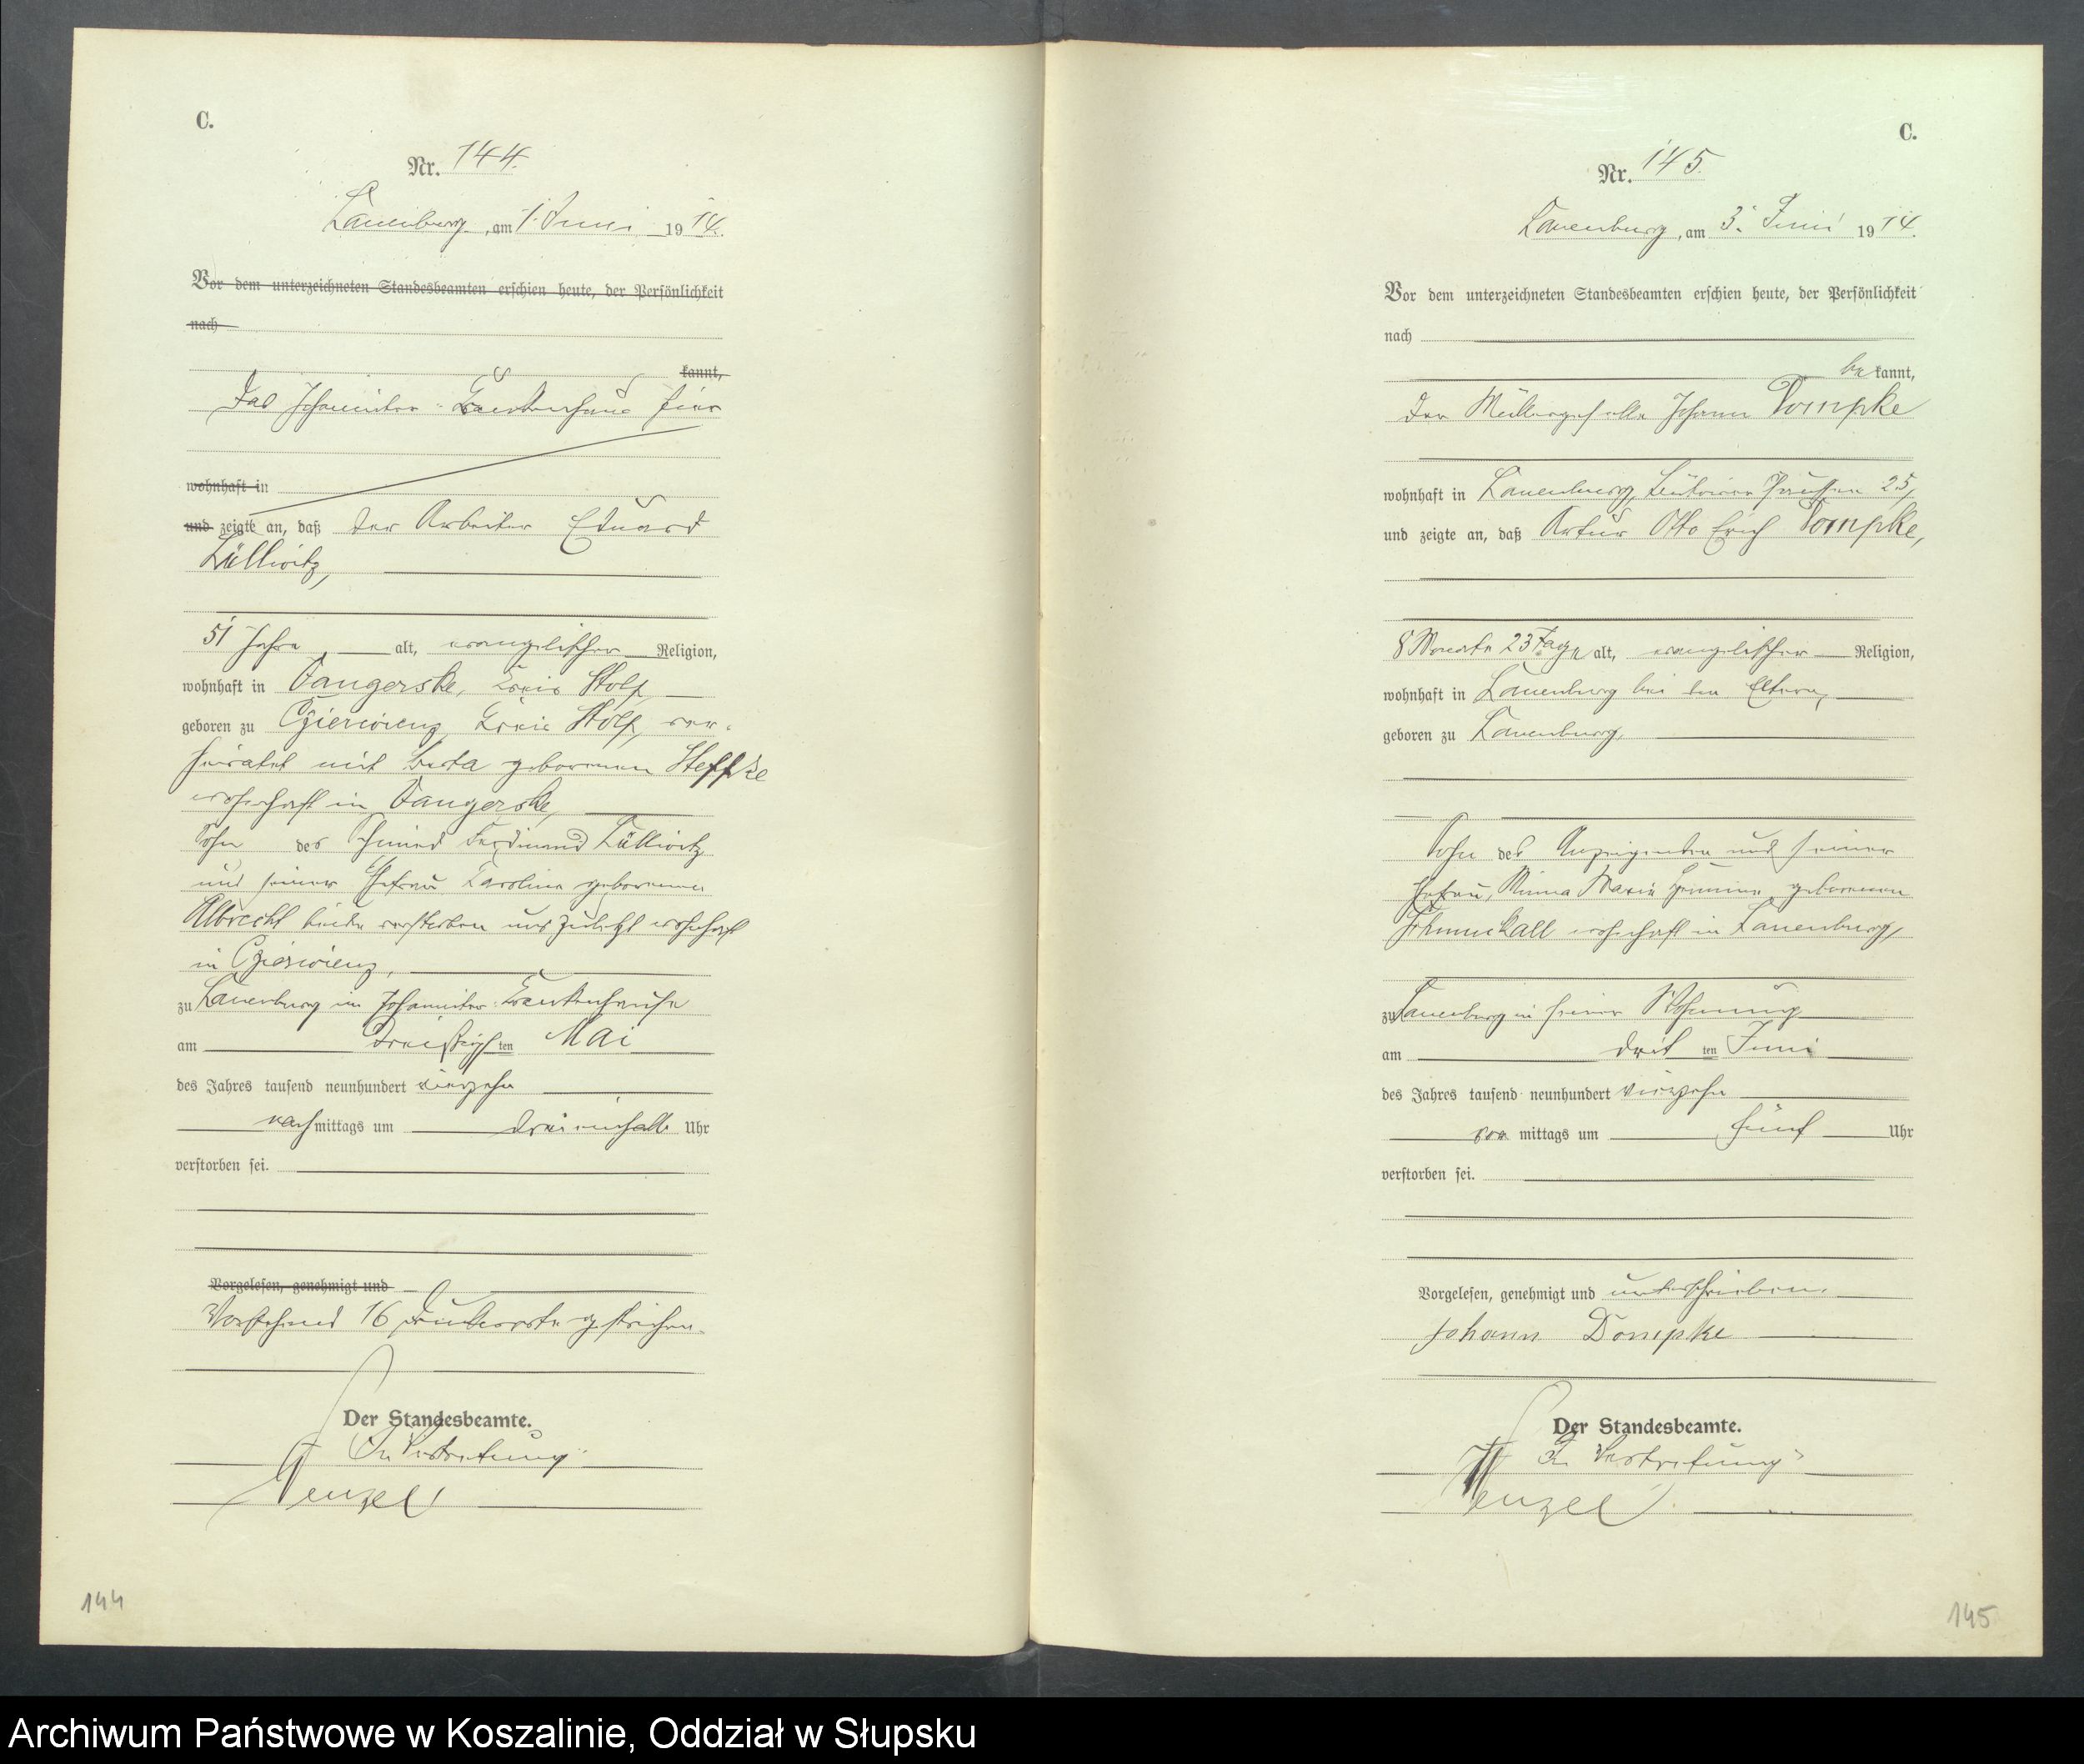 C.
Nr. 144.
Lauenburg, am 1. Juni 1914.
Vor dem unterzeichneten Standesbeamten erschien heute, der Persönlichkeit
nach
kannt,
Das Johanniter-Krankenhaus hier
wohnhaft in
und zeigte an, daß der Arbeiter Eduard
Züllwitz,
51 Jahre alt, evangelischer Religion,
wohnhaft in Vangerske, Kreis Stolp,
geboren zu Czierwienz, Kreis Stolp, ver-
heiratet mit Berta geborenen Steffke
wohnhaft in Vangerske,
Sohn des Schmied Ferdinand Züllwitz
und seiner Ehefrau Karoline geborenen
Albrecht beide verstorben und zuletzt wohnhaft
in Czierwienz,
zu Lauenburg im Johanniter-Krankenhause
am dreißigsten Mai
des Jahres tausend neunhundert vierzehn
nachmittags um dreieinhalb Uhr
verstorben sei.
Vorgelesen, genehmigt und
Vorstehend 16 Druckworte gestrichen.
Der Standesbeamte.
In Vertretung
Wenzel
144
C.
Nr. 145.
Lauenburg, am 3. Juni 1914.
Vor dem unterzeichneten Standesbeamten erschien heute, der Persönlichkeit
nach
bekannt,
der Müllergeselle Johann Dompke
wohnhaft in Lauenburg, 25,
und zeigte an, daß Artur Otto Erich Dompke,
8 Monate 23 Tage alt, evangelischer Religion,
wohnhaft in Lauenburg bei den Eltern,
geboren zu Lauenburg,
Sohn des Anzeigenden und seiner
Ehefrau, Minna Marie geborenen
wohnhaft in Lauenburg,
zu Lauenburg in seiner Wohnung
am dritten Juni
des Jahres tausend neunhundert vierzehn
vormittags um fünf Uhr
verstorben sei.
Vorgelesen, genehmigt und unterschrieben.
Johann Dompke
Der Standesbeamte.
In Vertretung
Wenzel
145
Archiwum Państwowe w Koszalinie, Oddział w Słupsku